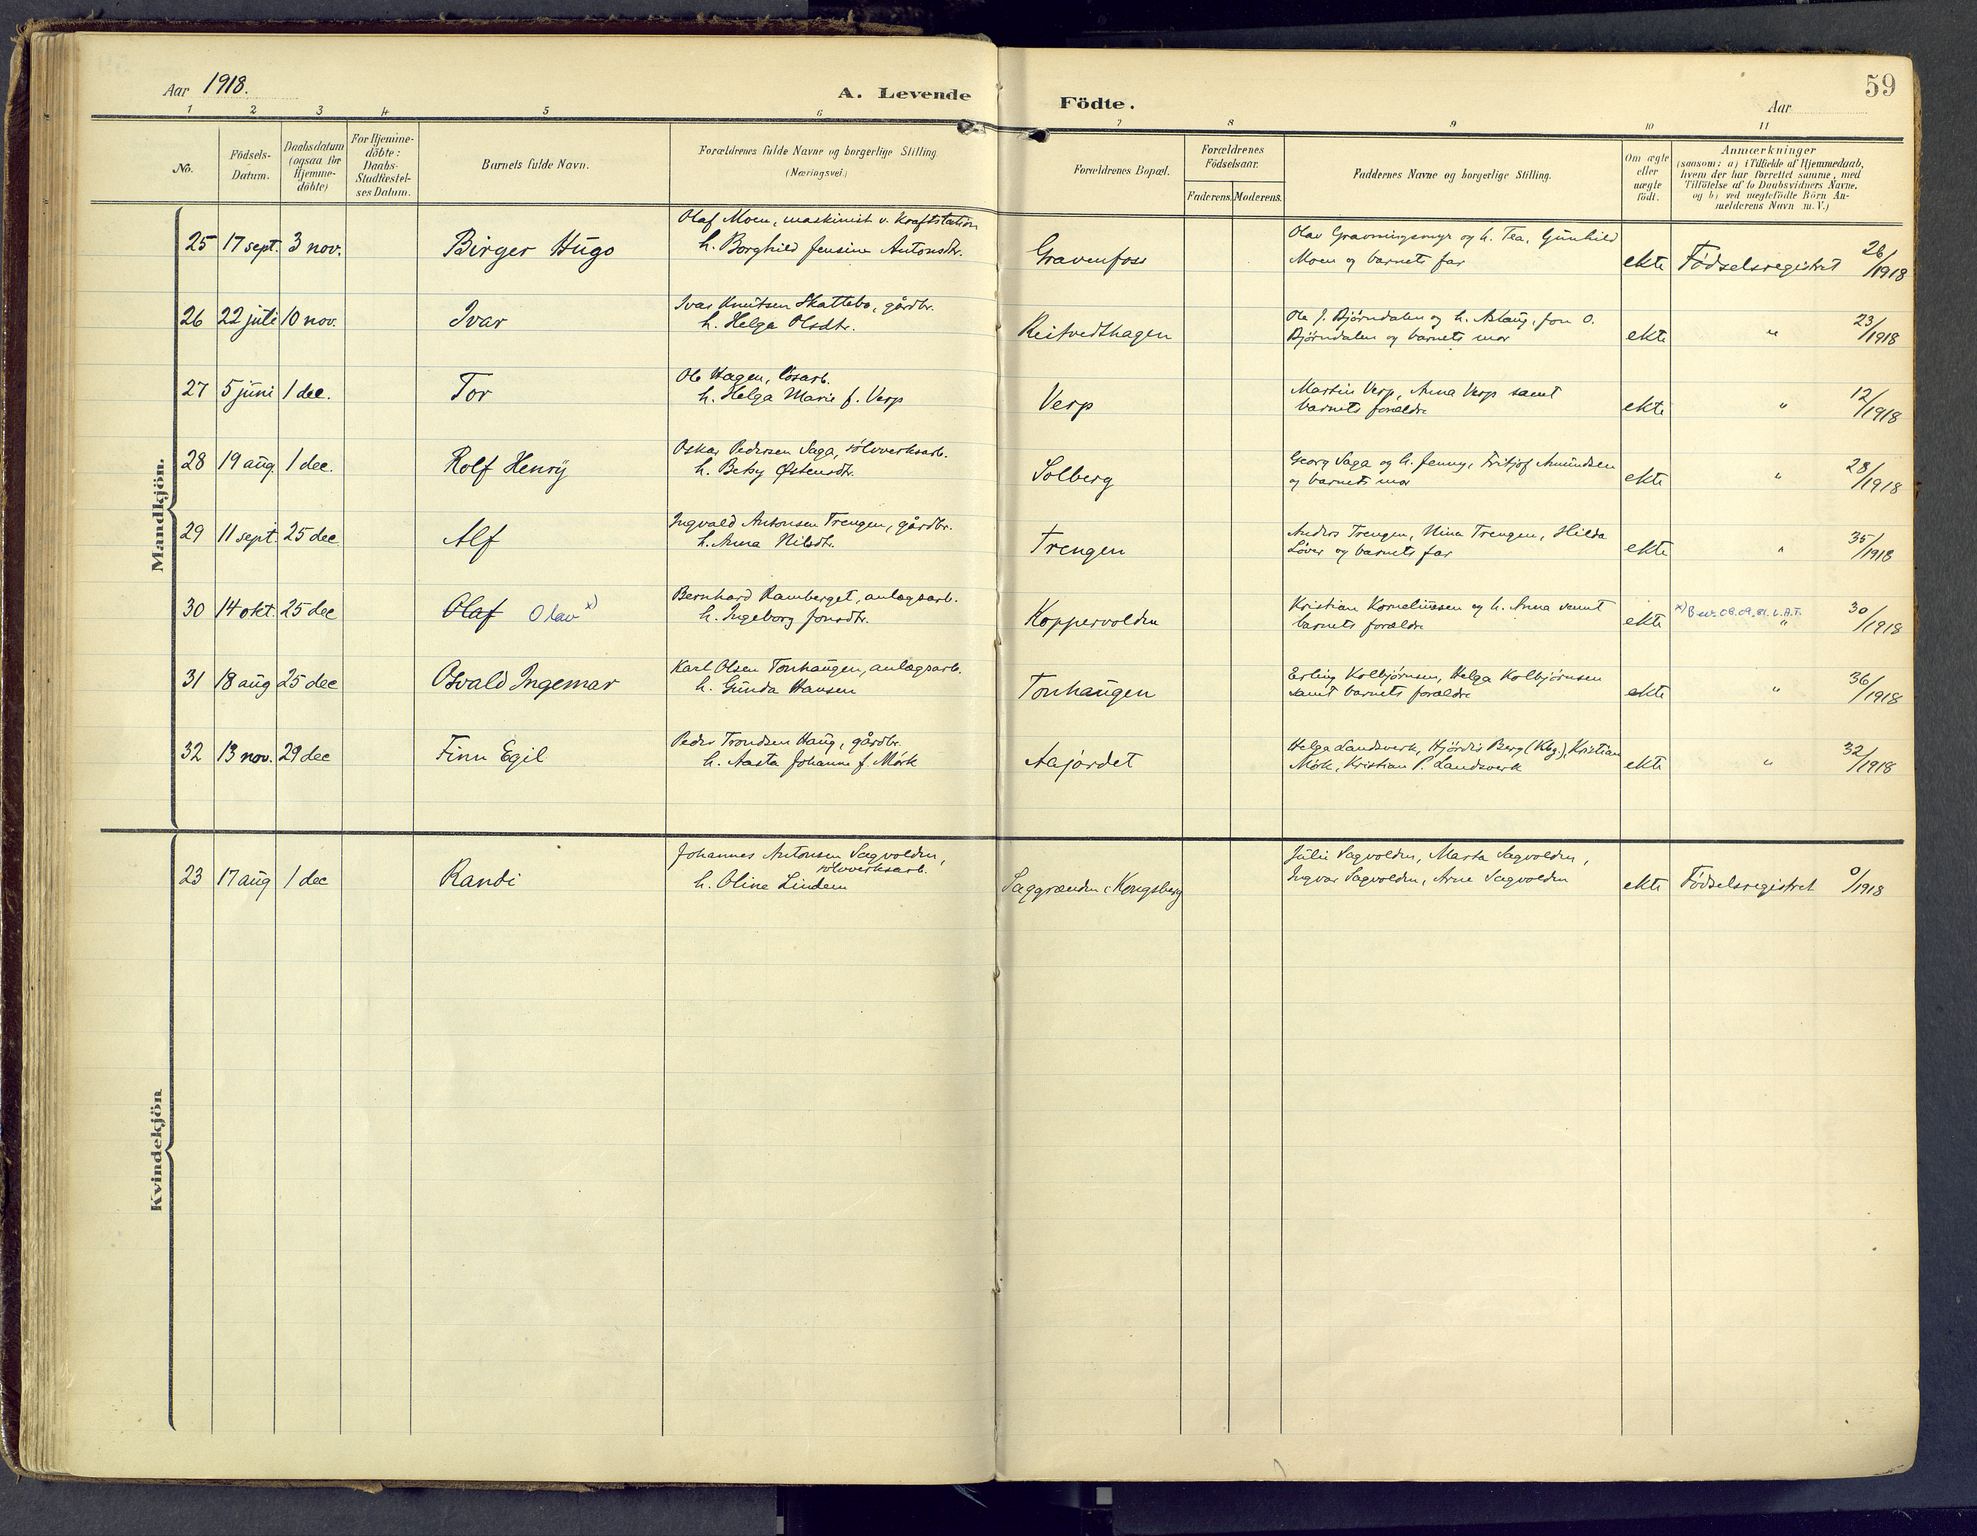 Aar 1918.
A. Levende Födte.
Aar
59
1 2 3 4 5 6 7 8 9 10 11
No.
Födsels-
Datum.
Daabsdatum
(ogsaa for
Hjemme-
döbte)
For Hjemme-
döbte:
Daabs-
Stadfæstel-
ses Datum.
Barnets fulde Navn.
Forældrenes fulde Navne og borgerlige Stilling
(Næringsvei.)
Forældrenes Bopæl.
Forældrenes
Födselsaar.
Faderens. Moderens.
Faddernes Navne og borgerlige Stilling.
Om ægte
eller
uægte
födt.
Anmærkninger
(saasom: a) i Tilfælde af Hjemmedaab,
hvem der har forrettet samme, med
Tilföielse af to Daabsvidners Navne,
og b) ved uægtefödte Börn An-
melderens Navn m. V.)
Mandkjön.
25 17 sept. 3 nov. Birger Hugo
Olaf Moen, maskinist v. Kraftstation
h. Borghild Jensine Antonsdtr.
Gravenfoss
Olav Gravningsmyr og h. Tea, Gunhild
Moen og barnets far
ekte Fødselsregistret 26/1918
26 22 juli 10 nov. Ivar
Ivar Knutsen Skattebo, gårdbr.
h. Helga Olsdtr.
Reistvedthagen
Ole J. Bjørndalen og h. Aslaug, Jon O.
Bjørndalen og barnets mor
ekte " 23/1918
27 5 juni 1 dec. Tor
Ole Hagen, løsarb.
h. Helga Marie f. Verp
Verp
Martin Verp, Anna Verp samt
barnets forældre
ekte " 12/1918
28 19 aug. 1 dec. Rolf Henry
Oskar Pedersen Saga, sølvverksarb.
h. Betsy Østensdtr.
Solberg
Georg Saga og h. Jenny, Fritjof Amundsen
og barnets mor
ekte " 28/1918
29 11 sept. 25 dec. Alf
Ingvald Antonsen Trengen, gårdbr.
h. Anna Nilsdtr.
Trengen
Anders Trengen, Nina Trengen, Hilda
Løver og barnets far
ekte " 35/1918
30 14 okt. 25 dec Olaf Olav x)
Bernhard Ramberget, anlægsarb.
h. Ingeborg Jonsdtr.
Koppervolden
Kristian Korneliussen og h. Anna samt
barnets forældre
ekte x) Bev. 08.09.81. L.A.T. " 30/1918
31 18 aug 25 dec Osvald Ingemar
Karl Olsen Tonhaugen, anlægsarb.
h. Gunda Hansen
Tonhaugen
Erling Kolbjørnsen, Helga Kolbjørnsen
samt barnets forældre
ekte " 36/1918
32 13 nov. 29 dec Finn Egil
Peder Trondsen Haug, gårdbr.
h. Aasta Johanne f. Mørk
Aajordet
Helga Landsverk, Hjørdis Berg (Kbg.), Kristian
Mørk, Kristian P. Landsverk
ekte " 32/1918
Kvindekjön
23 17 aug 1 dec Randi
Johannes Antonsen Sagvolden,
sølvverksarb.
h. Oline Lindem
Saggrænden i Kongsberg
Julie Sagvolden, Marta Sagvolden,
Ingvar Sagvolden, Arne Sagvolden
ekte Fødselsregistret 0/1918